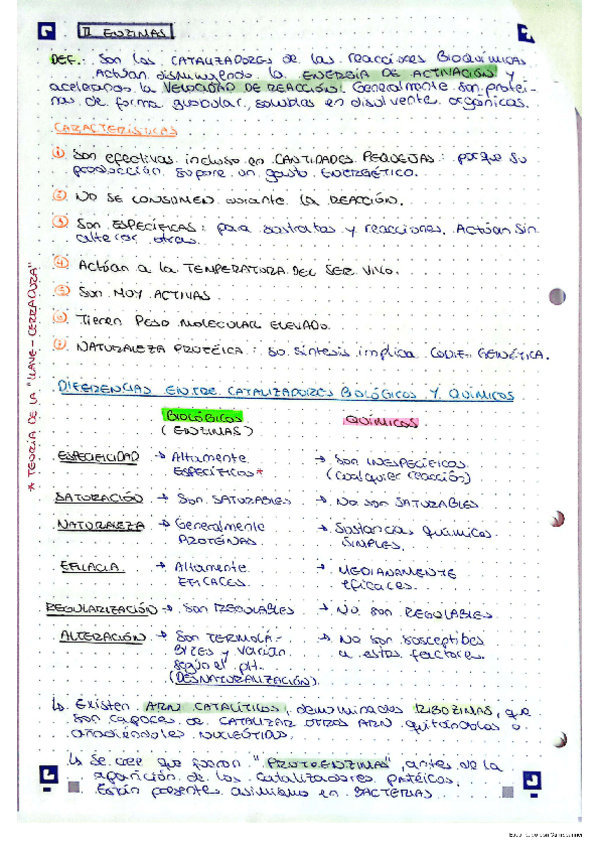 II ENZIMAS
DEF.: Son los CATALIZADORES de las reacciones BIOQUÍMICAS.
Actúan disminuyendo la ENERGÍA DE ACTIVACIÓN y
acelerando la VELOCIDAD DE REACCIÓN. Generalmente son proteí-
nas de forma globular, solubles en disolvente orgánicos.
CARACTERÍSTICAS
① Son efectivas incluso en CANTIDADES PEQUEÑAS: porque su
producción supone un gasto ENERGÉTICO.
② NO SE CONSUMEN durante la REACCIÓN.
③ Son ESPECÍFICAS: para sustratos y reacciones. Actúan sin
alterar otras.
④ Actúan a la TEMPERATURA DEL SER VIVO.
⑤ Son MUY ACTIVAS
⑥ Tienen PESO MOLECULAR ELEVADO.
⑦ NATURALEZA PROTÉICA: su síntesis implica CODIF. GENÉTICA.
* TEORÍA DE LA "LLAVE-CERRADURA"
DIFERENCIAS ENTRE CATALIZADORES BIOLÓGICOS Y QUÍMICOS
BIOLÓGICOS QUÍMICOS
(ENZIMAS)
ESPECIFICIDAD → Altamente → Son INESPECÍFICOS
ESPECÍFICOS* (cualquier reacción)
SATURACIÓN → Son SATURABLES → No son SATURABLES
NATURALEZA → Generalmente → Sustancias químicas
PROTEÍNAS SIMPLES.
EFICACIA → Altamente → MEDIANAMENTE
EFICACES eficaces.
REGULARIZACIÓN → Son REGULABLES → No son REGULABLES
ALTERACIÓN → Son TERMOLÁ- → No son susceptibles
BILES y varían a estos factores.
según el pH.
(DESNATURALIZACIÓN)
↳ Existen ARN CATALÍTICOS, denominados RIBOZIMAS, que
son capaces de CATALIZAR OTROS ARN quitándolos o
añadiéndoles NUCLEÓTIDOS.
↳ Se cree que fueron "PROTOENZIMAS", antes de la
aparición de los catalizadores protéicos.
Están presentes asimismo en BACTERIAS.